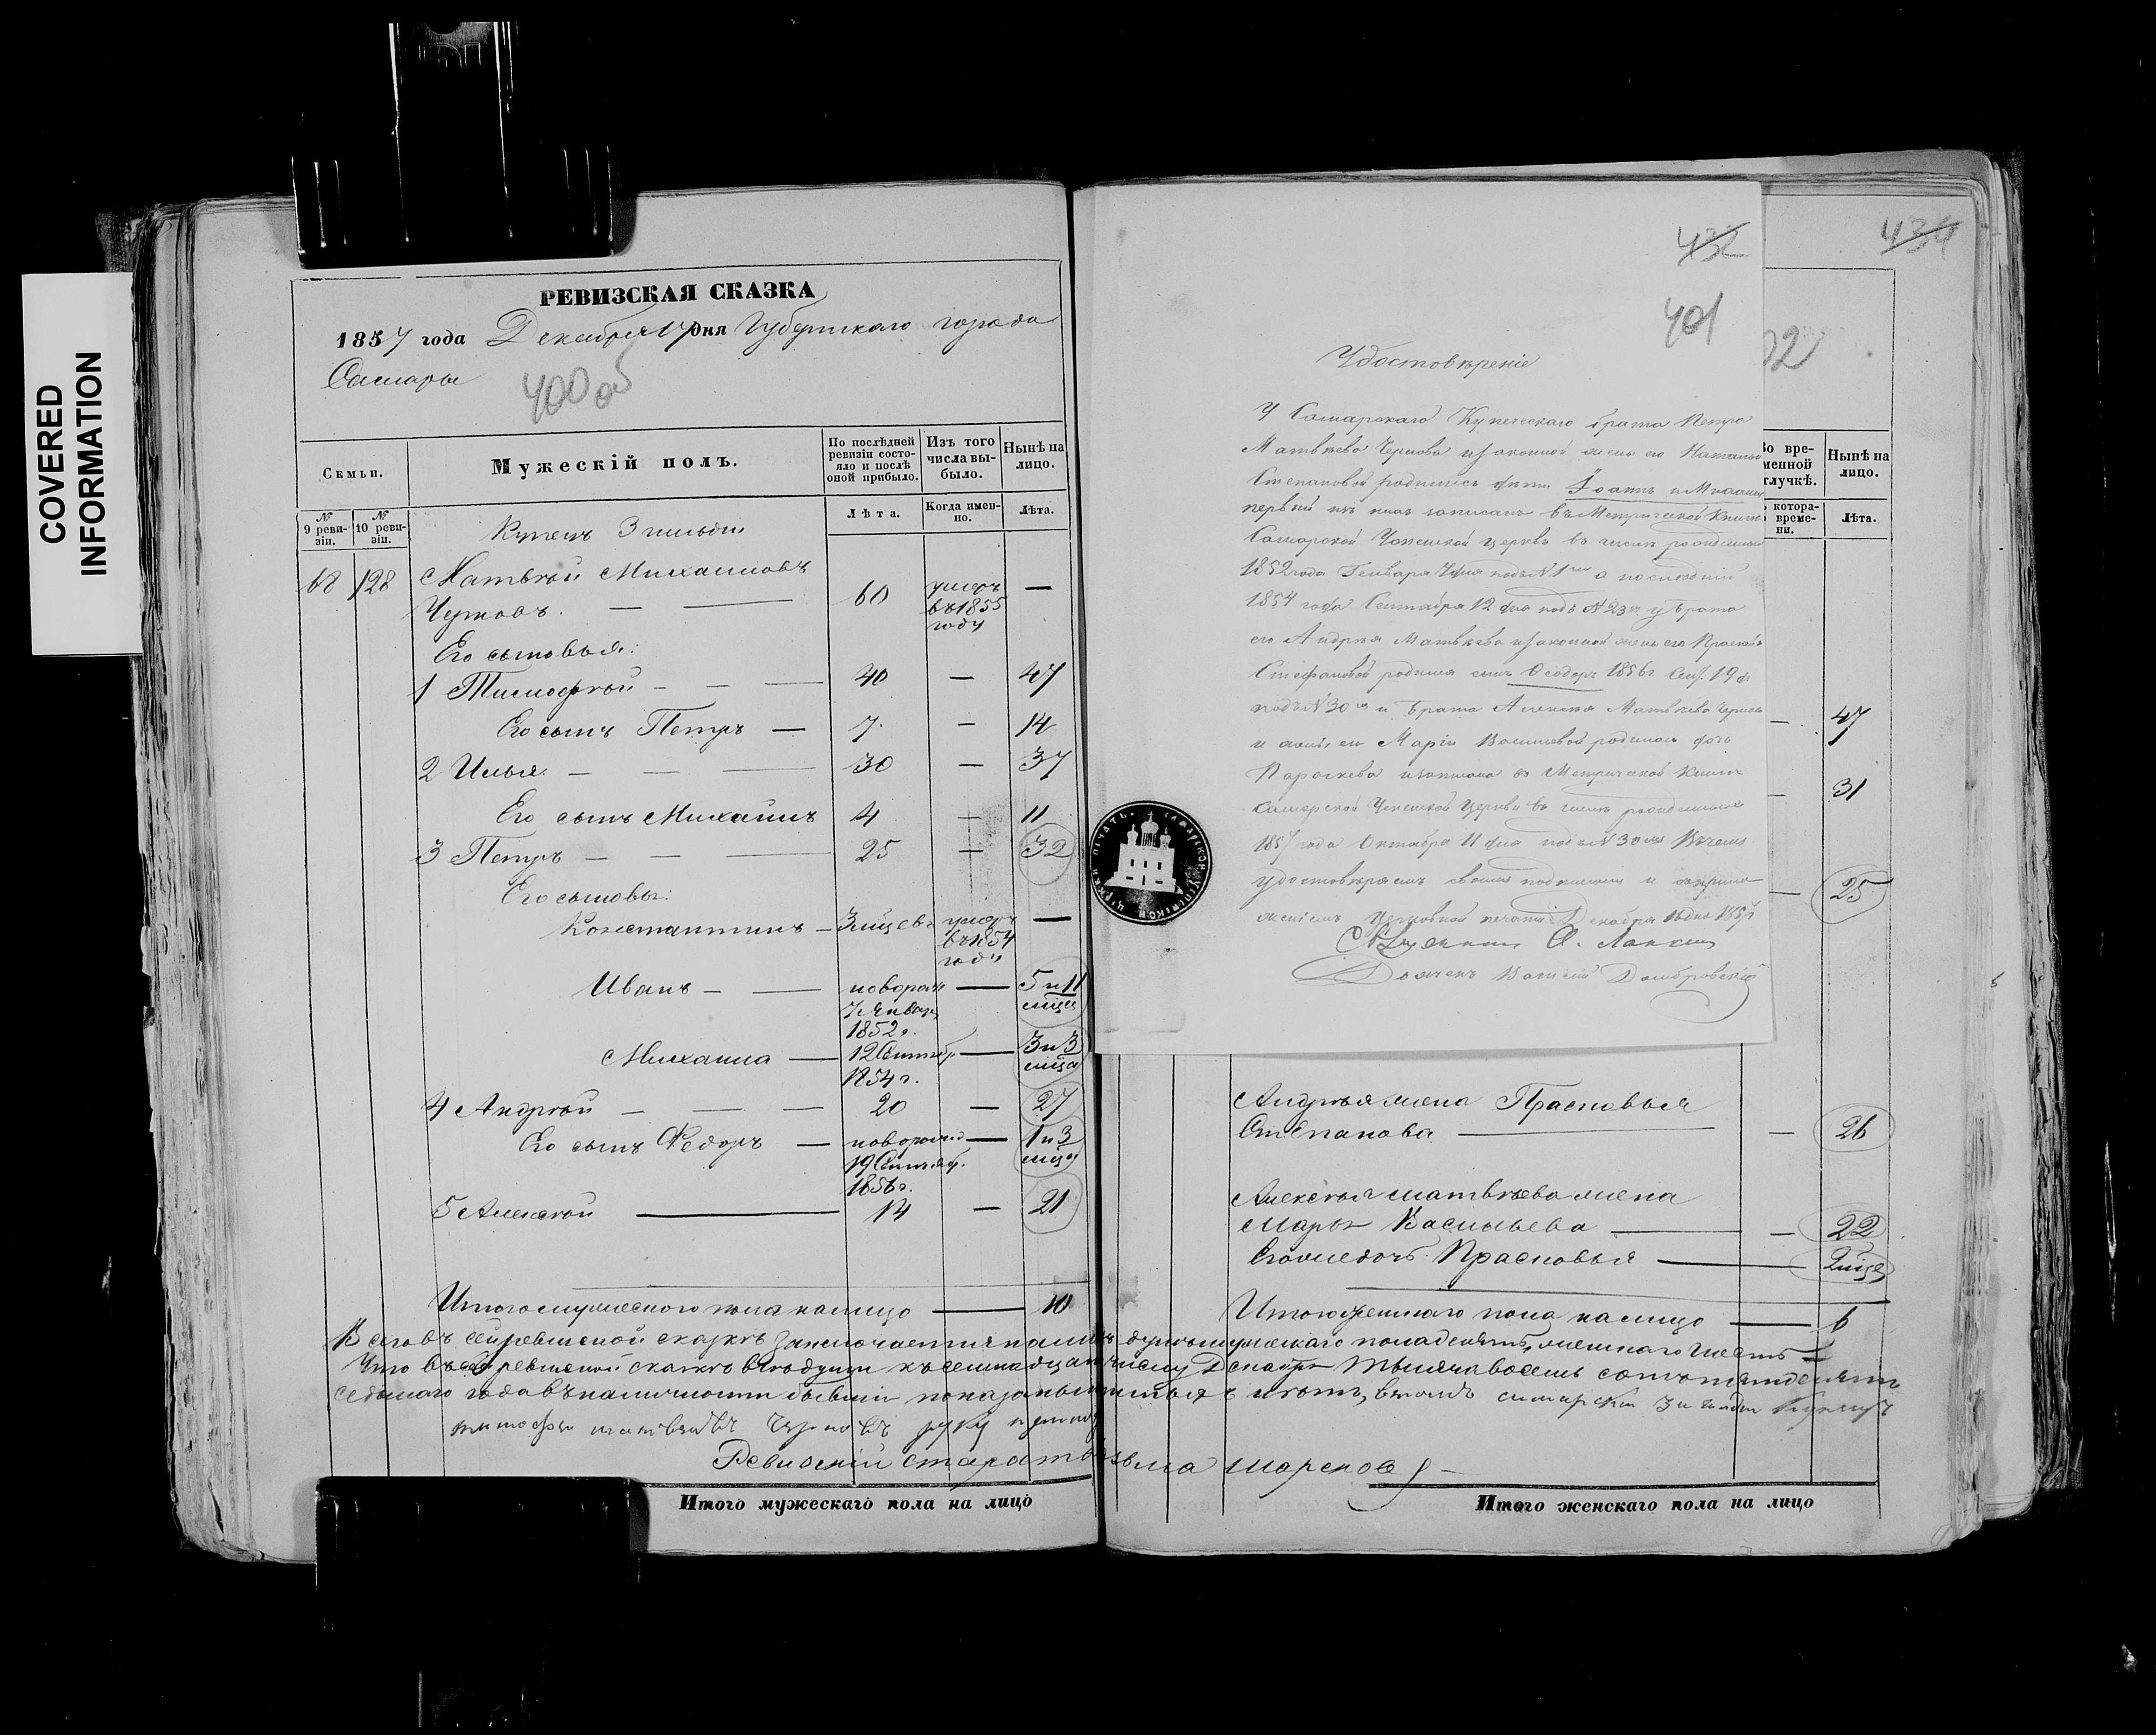 COVERED
INFORMATION
РЕВИЗСКАЯ СКАЗКА
1857 года Декабря 17 дня Губернскаго города
Самары
400 об
Семьи.
Мужескій полъ.
По послѣдней ревизіи состояло и послѣ оной прибыло.
Изъ того числа выбыло.
Нынѣ на лицо.
№ 9 ревизіи.
№ 10 ревизіи.
Лѣта.
Когда именно.
Лѣта.
Купецъ 3 гильдіи
68 128 Матвѣй Михайловъ
Черновъ. — — 60 умеръ въ 1855 году —
Его сыновья:
1 Тимофѣй — — — 40 — 47
Его сынъ Петръ — 7 — 14
2 Илья — — — 30 — 37
Его сынъ Михаилъ 4 — 11
3 Петръ — — — 25 — 32
Его сыновья:
Константинъ — 3 мцсвъ умеръ въ 1854 году —
Иванъ — — новорож 7 Января 1852 г. — 5 и 11 мцсв
Михаила — 12 Сентяб 1854 г. — 3 и 3 мцса
4 Андрѣй — — — 20 — 27
Его сынъ Федоръ — новорожд 19 Сентяб. 1856 г. — 1 и 3 мцса
5 Алексѣй — 14 — 21
Итого мужескаго пола на лицо — 10
432
401
Удостовѣреніе
У Самарскаго Купеческаго брата Петра
Матвѣева Чернова и законной жены его Натальи
Степановой родились дѣти Іоаннъ и Михаилъ
первый изъ нихъ записанъ въ Метрической Книгѣ
Самарской Успенской церкви въ числѣ рожденныхъ
1852 года Генваря 7 дня подъ № 1 а послѣдній
1854 года Сентября 12 дня подъ № 23 у брата
его Андрея Матвѣева и законной жены его Прасковьи
Стефановой родился сынъ Ѳеодоръ 1856 г. Сен. 19 д.
подъ № 30 и брата Алексѣя Матвѣева Чернова
и жены его Маріи Васильевой родилась дочь
Параскева и записана въ Метрической Книгѣ
Самарской Успенской Церкви въ числѣ рожденныхъ
1857 года Октября 11 дня подъ № 30 въ чемъ
удостовѣряемъ своимъ подписомъ и прило
женіемъ Церковной печати Декабря дня 1857
434
02
Во временной отлучкѣ.
Нынѣ на лицо.
Лѣта.
— 47
— 31
— 25
Андрѣя жена Прасковья
Степанова — — 26
Алексѣя Матвѣева жена
Марья Васильева — — 22
Его же дочь Прасковья — 2 мцсв
Итого женскаго пола на лицо — 6
Всего въ сей ревизской сказкѣ заключается на лицо душъ мужескаго пола десять, женскаго шесть —
Что въ сей ревизской сказкѣ всѣ души къ семнадцатому числу Декабря тысяча восемь сотъ пятьдесятъ
седьмаго года въ наличности бывшіе показаны и нѣтъ, въ томъ самарскій 3 гильдіи купецъ
тимофѣй матвѣевъ Черновъ руку приложилъ
Ревизскій староста
Итого мужескаго пола на лицо
Итого женскаго пола на лицо